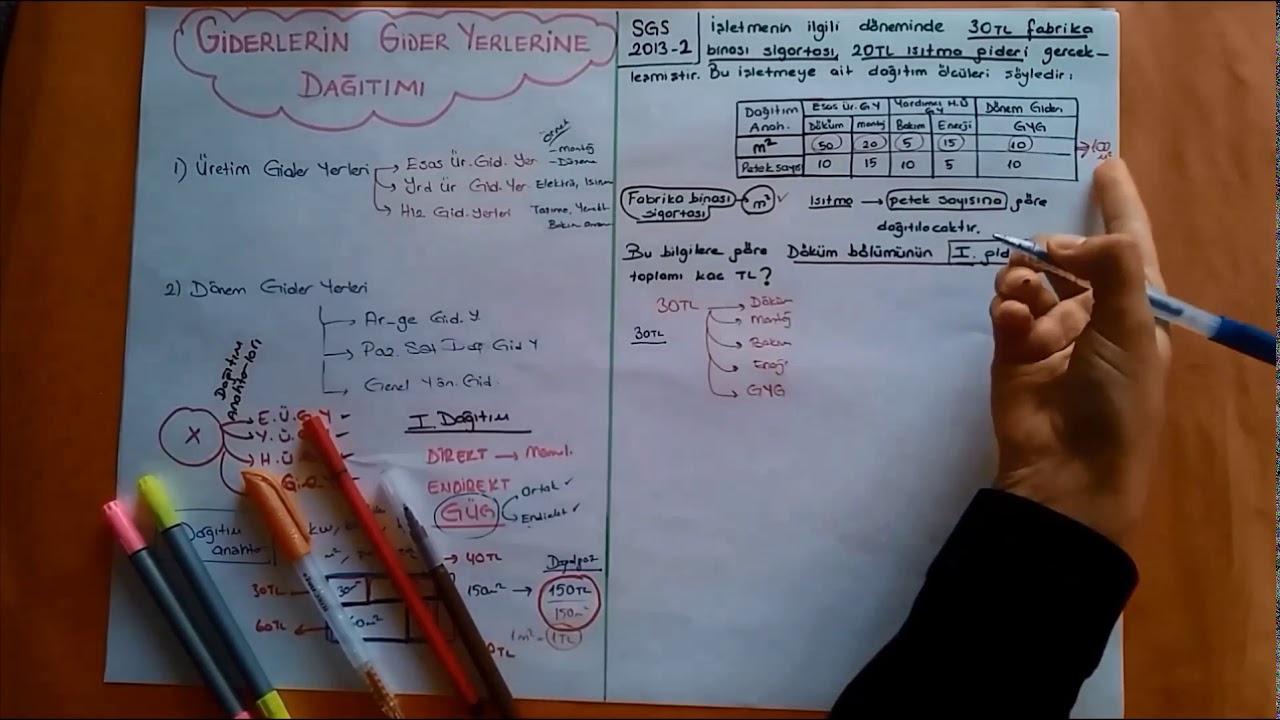 GIDERLERIN GIDER YERLERINE
DAĞITIMI
1) Üretim Gider Yerleri
Esas Ür. Gid. Yer
Yrd Ür Gid. Yer Elektrik, Isınm
Hiz Gid. Yerleri Taşıma, Yemekh
Bakım Onarım
Örnek
- montaj
2) Dönem Gider Yerleri
Ar-ge Gid. Y
Paz. Sat Gid Y
Genel Yön. Gid.
Dağıtım
Anahtarları
X
E.Ü.G.Y -
Y.Ü.
H.Ü
I. Dağıtım
DİREKT → Mamul.
ENDİREKT
GÜG
Ortak ✓
Endirekt ✓
Dağıtım
anahtar
→ 40TL
30TL
30m²
60TL
150m² →
Doğalgaz
150TL
150m²
1m² = 1TL
SGS
2013-2
İşletmenin ilgili döneminde 30TL fabrika
binası sigortası, 20TL ısıtma gideri gerçek-
leşmiştir. Bu işletmeye ait dağıtım ölçüleri şöyledir:
Dağıtım Anah. Esas Ür. G Y Yardımcı H.Ü GY Dönem Gideri
Döküm montaj Bakım Enerji GYG
m² 50 20 5 15 10 → 100 m²
Petek sayısı 10 15 10 5 10
Fabrika binası sigortası → m² ✓
Isıtma → petek sayısına göre
dağıtılacaktır.
Bu bilgilere göre Döküm bölümünün I. gid
toplamı kaç TL?
30TL → Döküm
30TL
Montaj
Bakım
Enerji
GYG